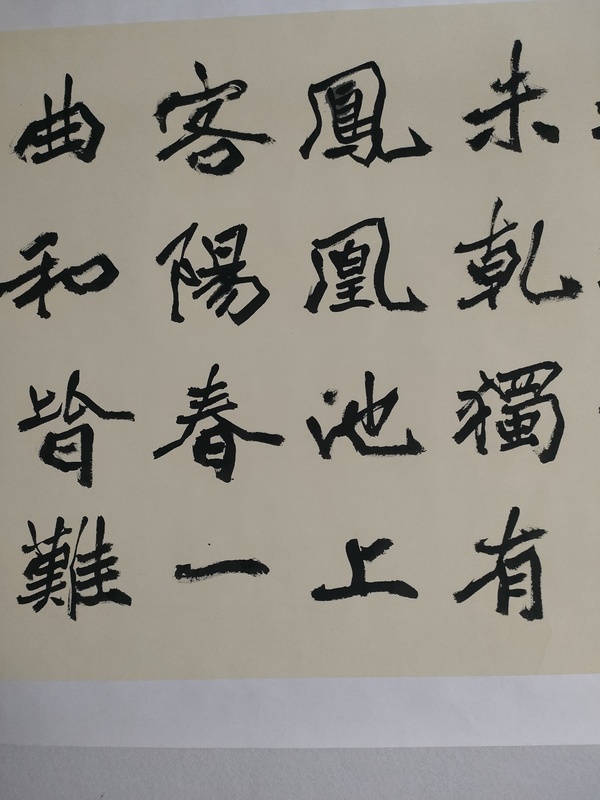 未乾獨有
鳳凰池上
客陽春一
曲和皆難